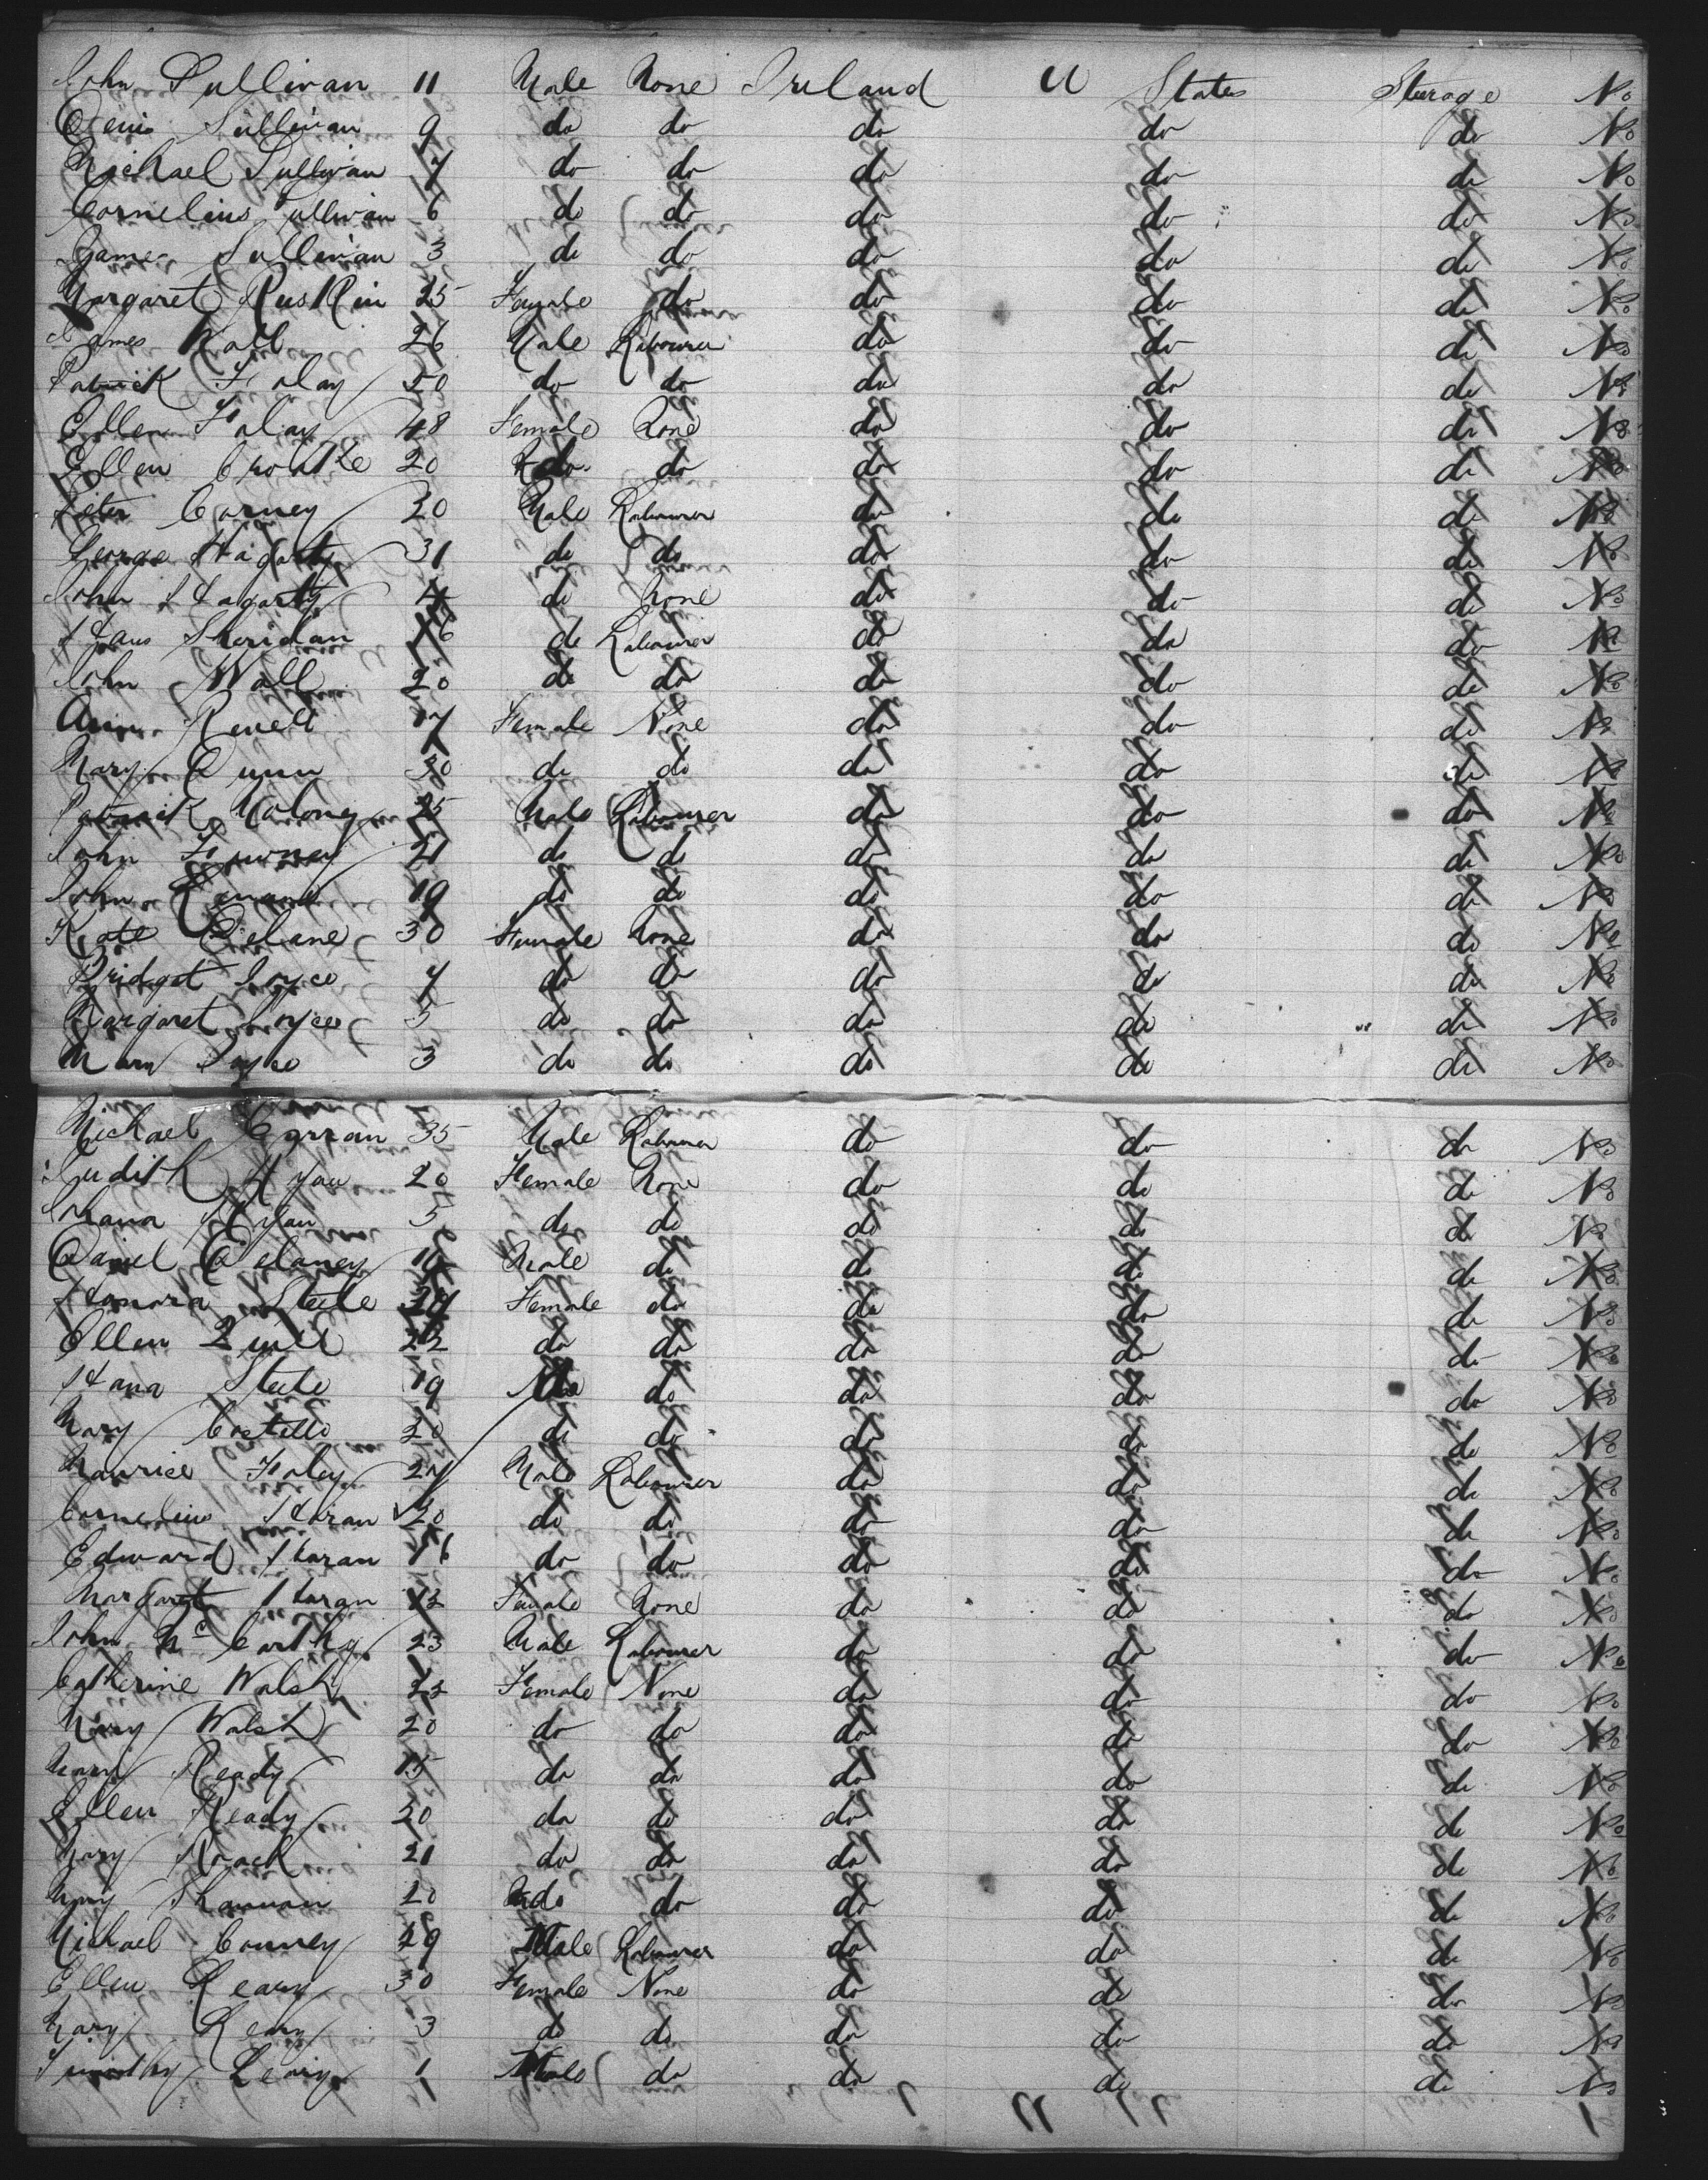 John Sullivan 11 Male None Ireland U States Steerage No
Denis Sullivan 9 do do do do do No
Michael Sullivan 7 do do do do do No
Cornelius Sullivan 6 do do do do do No
James Sullivan 3 do do do do do No
Margaret Ruskin 25 Female do do do do No
James Wall 26 Male Labourer do do do No
Patrick Folay 50 do do do do do No
Ellen Folay 48 Female None do do do No
Ellen Croake 20 do do do do do No
Peter Carney 20 Male Labourer do do do No
George Hagarty 31 do do do do do No
John Hagarty do None do do do No
Sheridan 26 do Labourer do do do No
John Wall 20 do do do do do No
Ann 17 Female None do do do No
Mary Dunn 30 do do do do do No
Patrick Maloney 25 Male Labourer do do do No
John 21 do do do do do No
John 19 do do do do do No
Kate Delane 30 Female None do do do No
Bridget Joyce 7 do do do do do No
Margaret Joyce 5 do do do do do No
Mary Joyce 3 do do do do do No
Michael Curran 35 Male Labourer do do do No
Judith Ryan 20 Female None do do do No
Johana Ryan 5 do do do do do No
Daniel Delaney 10 Male do do do do No
Honora Steele Female do do do do No
Ellen 22 do do do do do No
Hana Steele 19 do do do do No
Mary Costello 20 do do do do do No
Maurice Foley 27 Male Labourer do do do No
Cornelius Horan 20 do do do do do No
Edward Horan 16 do do do do do No
Margaret Horan Female None do do do No
John McCarthy 23 Male Labourer do do do No
Catherine Walsh 22 Female None do do do No
Mary Walsh 20 do do do do do No
Mary Ready 15 do do do do do No
Ellen Ready 20 do do do do do No
Mary Roach 21 do do do do do No
Mary Shannan 20 do do do do do No
Michael Conney 29 Male Labourer do do do No
Ellen Leary 30 Female None do do do No
Mary Leary 3 do do do do do No
Timothy Leary 1 Male do do do do No